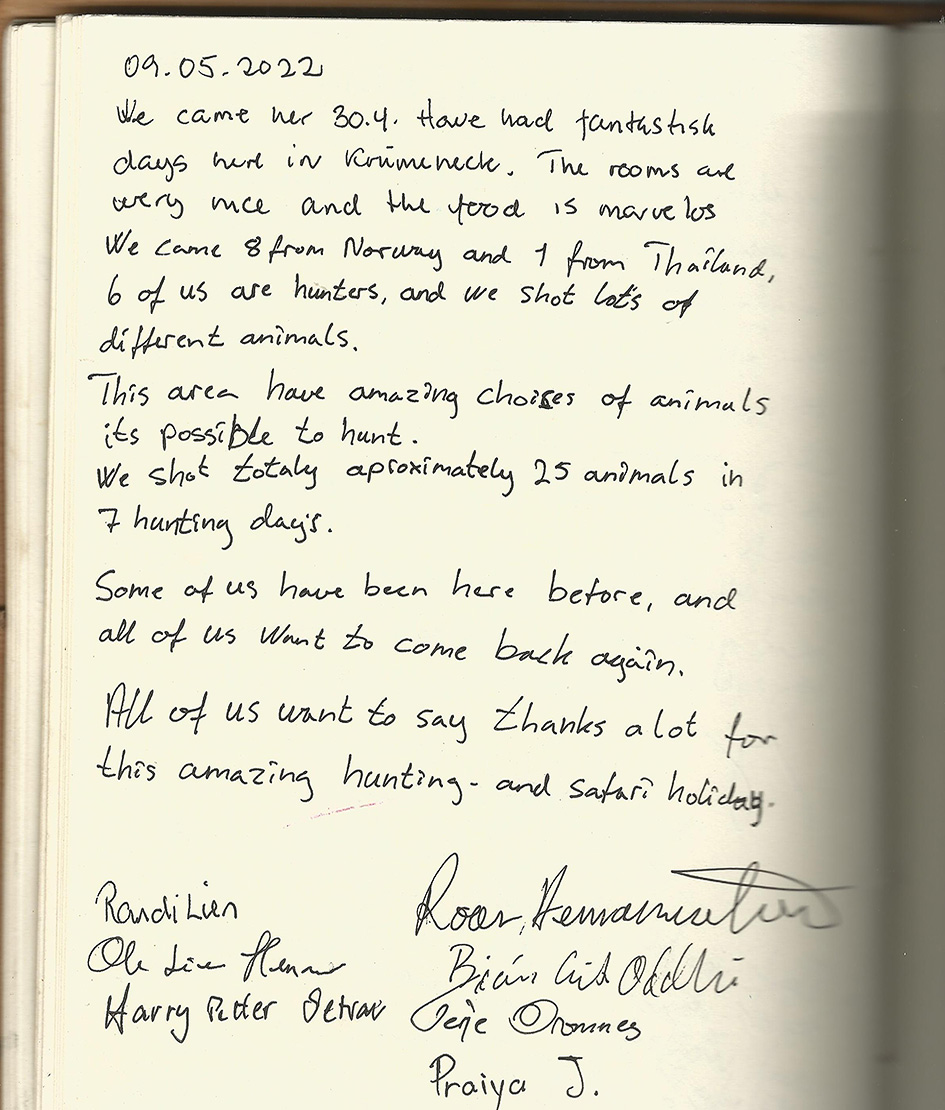 09.05.2022
We came her 30.4. Have had fantastisk
days here in Krumeneck. The rooms are
wery nice and the food is marvelos
We came 8 from Norway and 1 from Thailand,
6 of us are hunters, and we shot lots of
different animals.
This area have amazing choises of animals
its possible to hunt.
We shot totaly aproximately 25 animals in
7 hunting days.
Some of us have been here before, and
all of us want to come back again.
All of us want to say thanks a lot for
this amazing hunting- and safari holiday.
Randi Lien
Roar
Ole
Harry Petter
Praiya J.